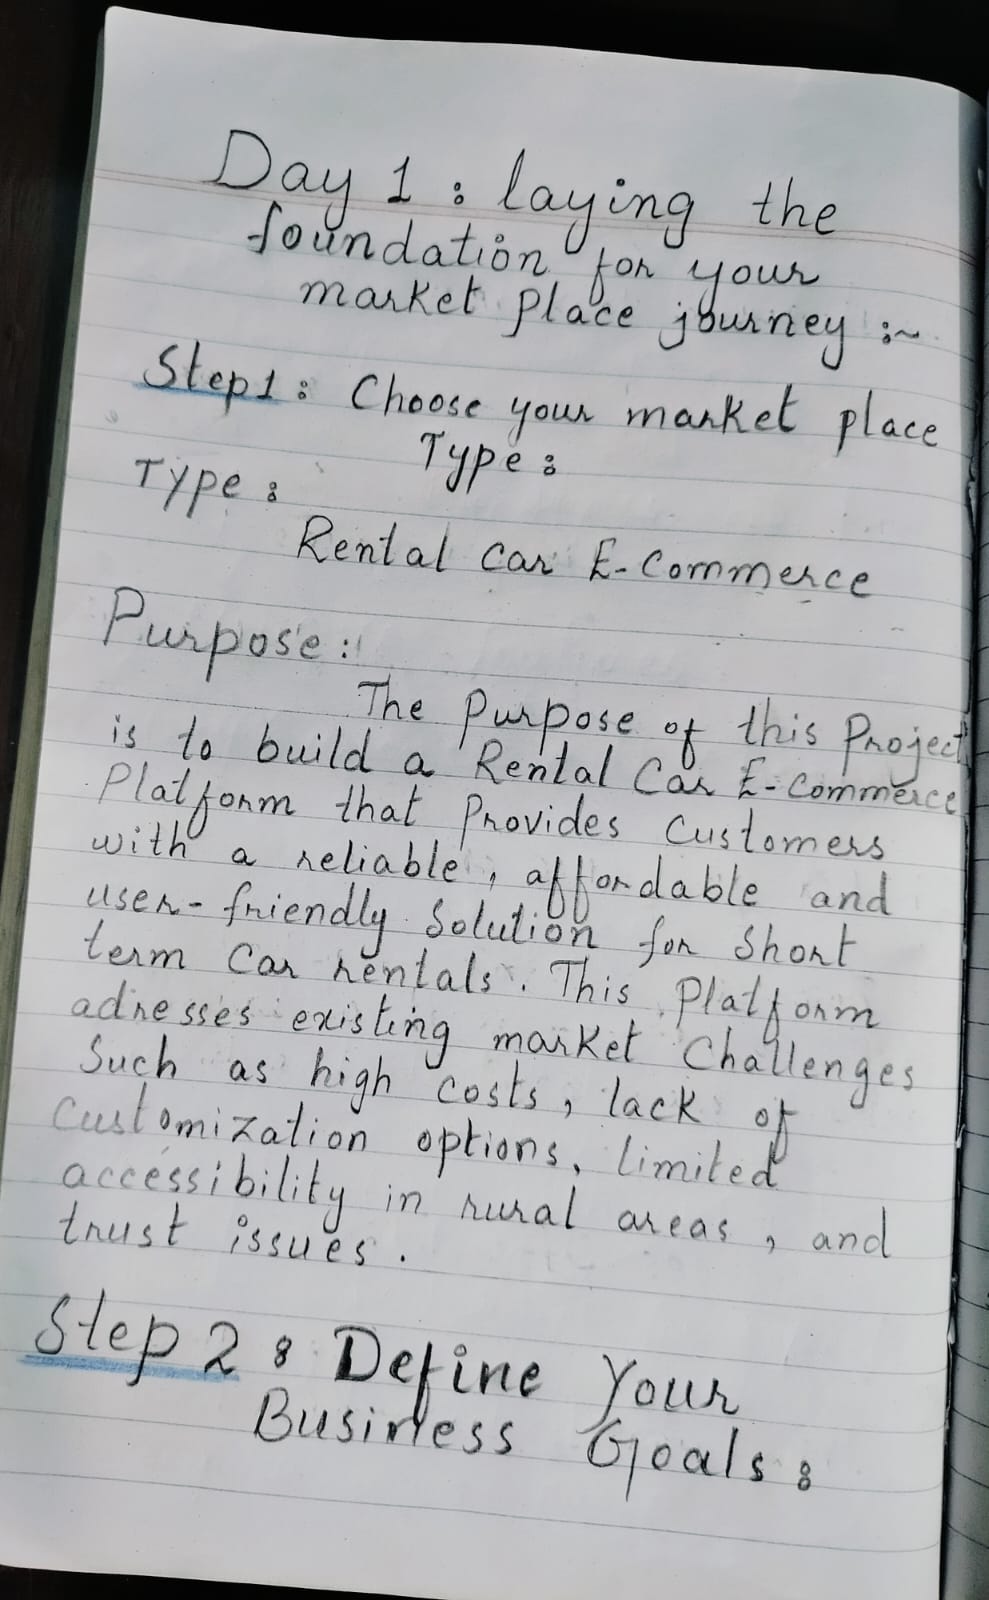 Day 1 : laying the
foundation for your
market place journey :~
Step1 : Choose your market place
Type :
Type :
Rental Car E-Commerce
Purpose :
The Purpose of this Project
is to build a Rental Car E-Commerce
Platform that Provides Customers
with a reliable, affordable and
user-friendly Solution for Short
term Car rentals. This Platform
adresses existing market Challenges
Such as high costs, lack of
Customization options, limited
accessibility in rural areas, and
trust issues.
Step 2 : Define Your
Business Goals :